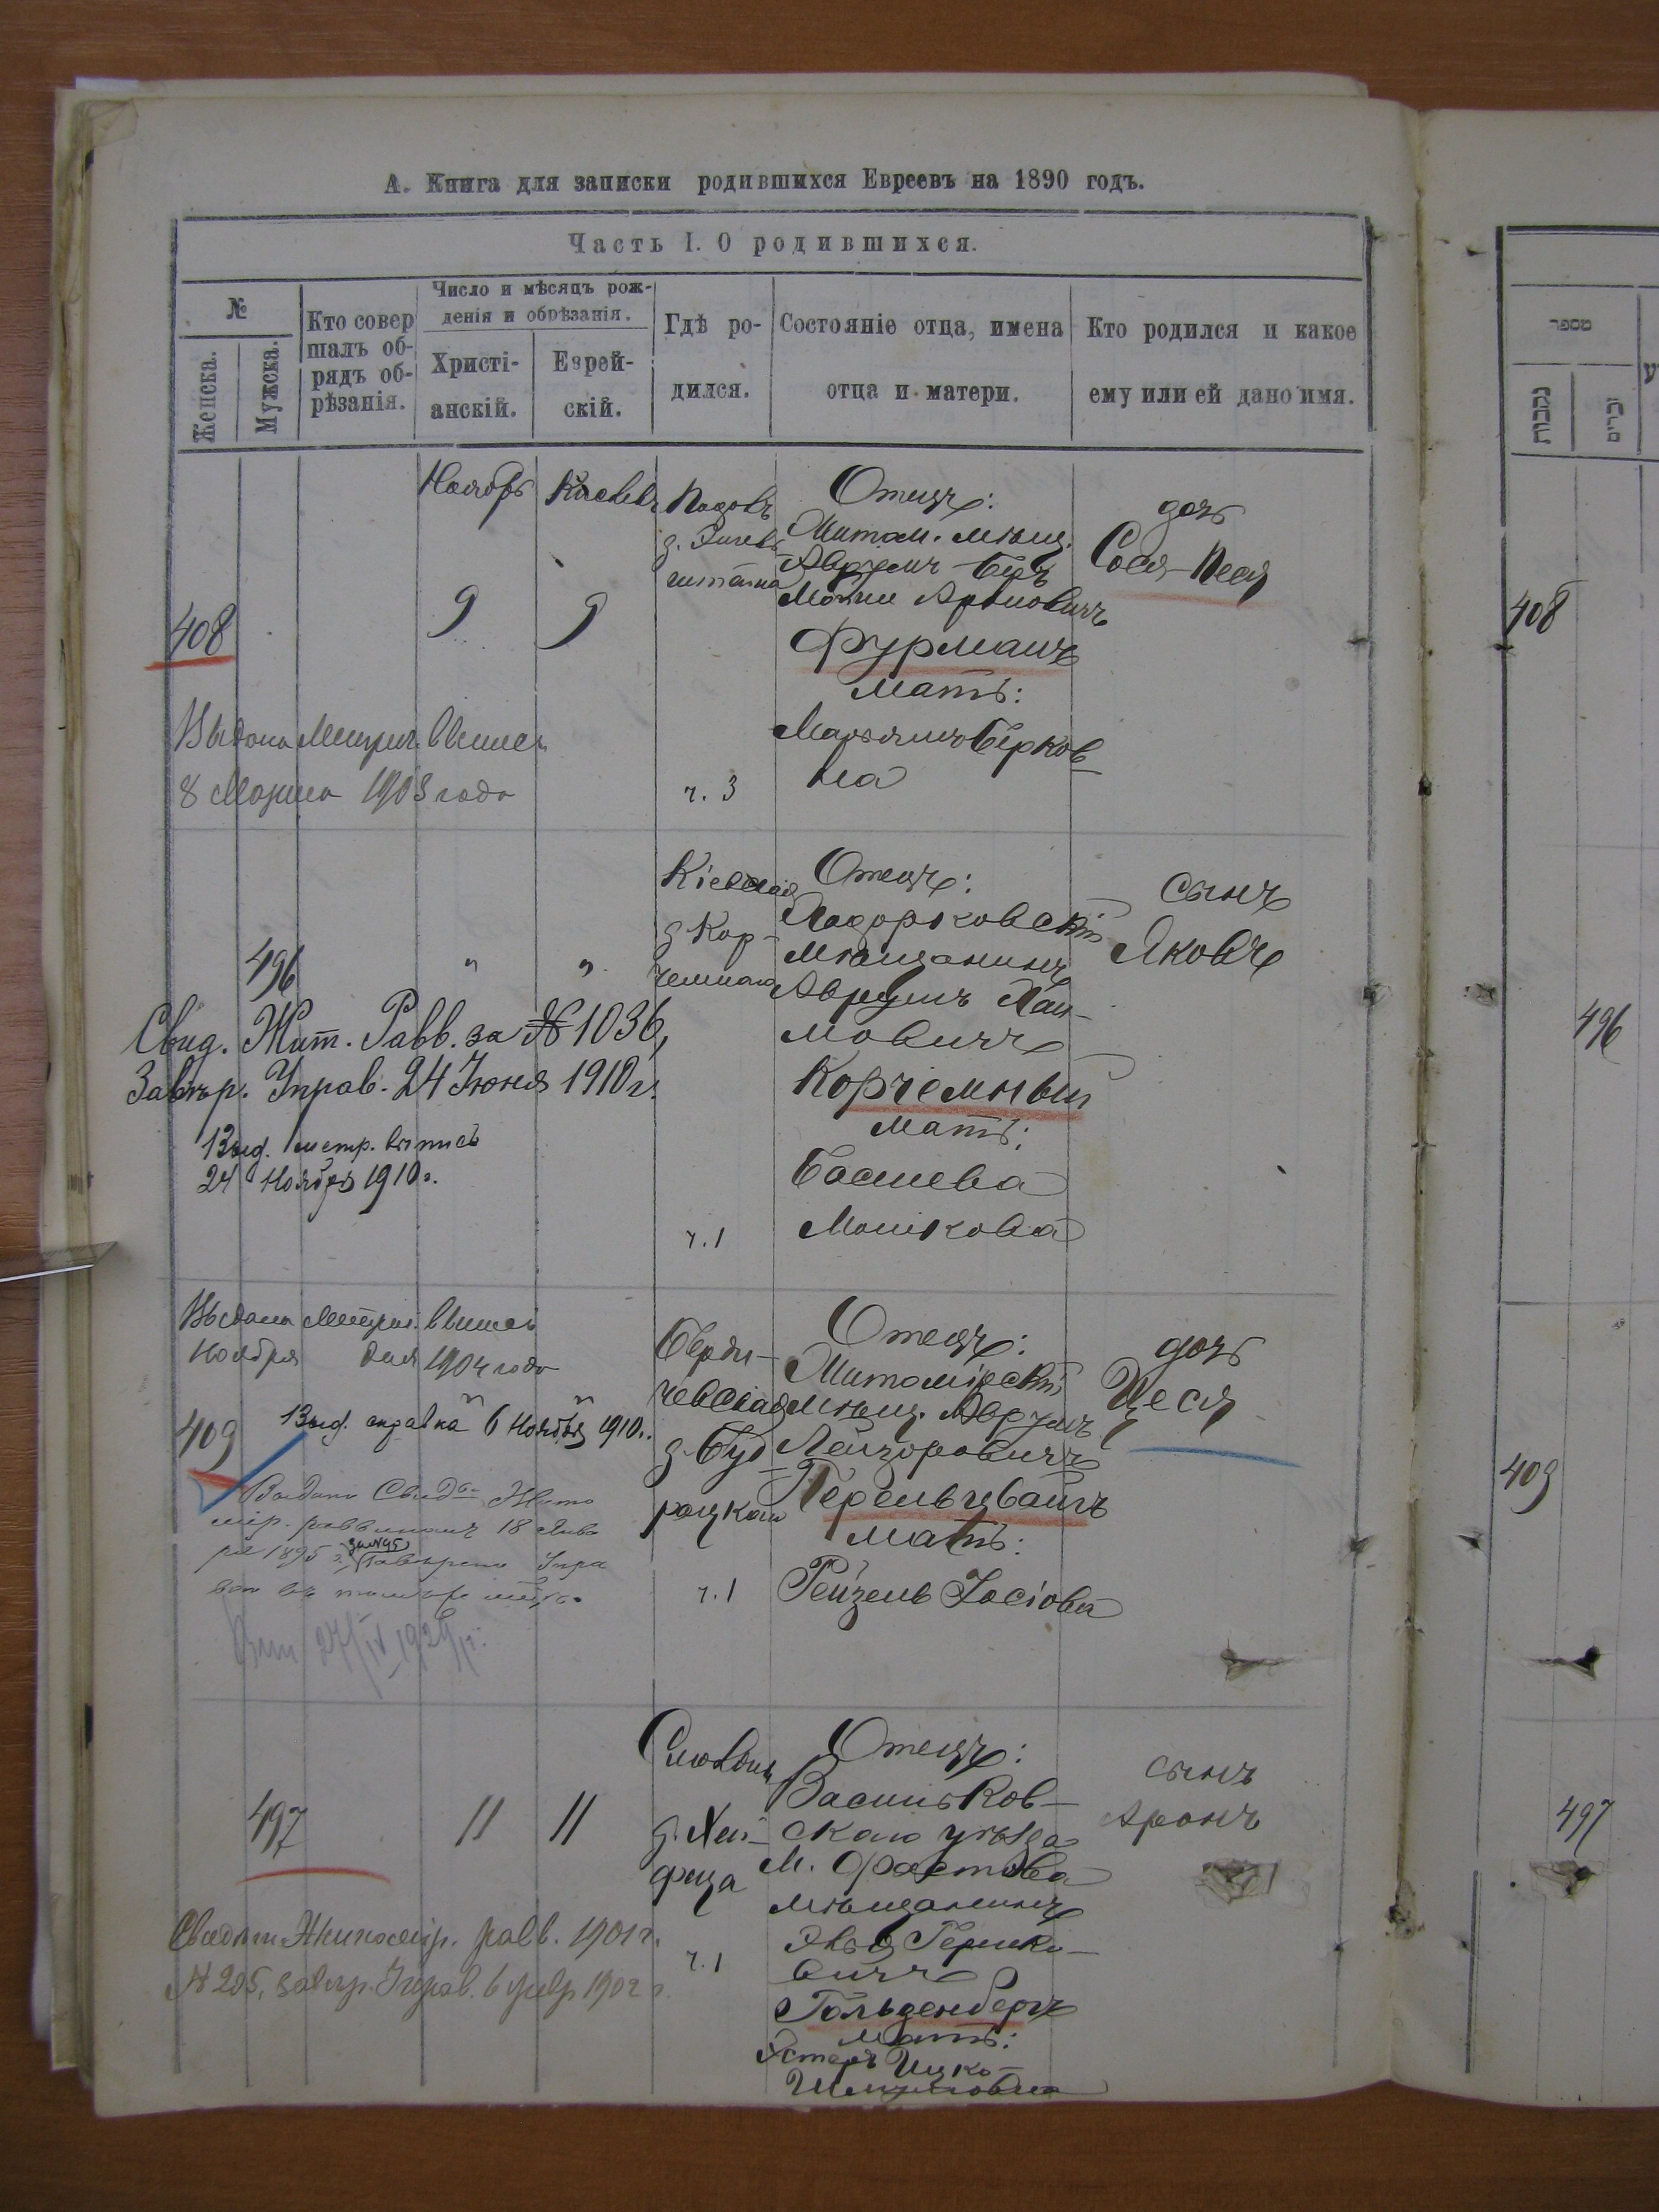 А. Книга для записки родившихся Евреевъ на 1890 годъ.
Часть I. О родившихся.
№
Женска.
Мужска.
Кто совер
шалъ об-
рядъ об-
рѣзанія.
Число и мѣсяцъ рож-
денія и обрѣзанія.
Христі-
анскій.
Еврей-
скій.
Гдѣ ро-
дился.
Состояніе отца, имена
отца и матери.
Кто родился и какое
ему или ей дано имя.
408
Ноябрь
9
Кислевъ
9
ч. 3
Отецъ:
Житом. мѣщ.
Аврумъ-Беръ
Ароновичъ
Фурманъ
Мать:
Берков-
на
дочь
Сося-Песя
Выдана Метрич. выпись
8 Марта 1903 года
496
"
"
Кіевская
д. Кор-
чемнаго
ч. 1
Отецъ:
мѣщанинъ
Аврумъ Хаи-
мовичъ
Корчемный
Мать:
Басшева
Мошкова
сынъ
Яковъ
Свид. Жит. Равв. за № 1036,
Завѣр. Управ. 24 Іюня 1910 г.
Выд. метр. выпись
24 Ноября 1910 г.
Выдана Метрич. выпись
Ноября дня 1904 года
409
Выд. справка 6 Ноября 1910 г.
Берди-
чевская
ч. 1
Отецъ:
Житомірскій
мѣщ. Аврумъ
Лейзоровичъ
Перельцвайгъ
Мать:
Рейзель Іосіова
дочь
Цеся
Выдано
мір. раввиномъ 18 Янва
ря 1895
497
11
11
д. Хей-
феца
ч. 1
Отецъ:
Васильков-
скаго уѣзда
м. Фастова
мѣщанинъ
Гершко-
вичъ
Гольденбергъ
Мать:
Ицко-
Шмулевна
сынъ
Аронъ
Житомір. равв. 1901 г.
№ 205, завѣр. Управ. 6 1902 г.
מספר
נקבות
זכרים
408
496
409
497